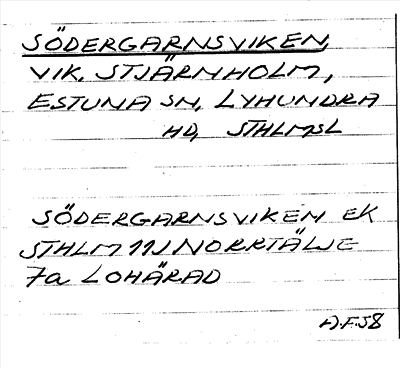 SÖDERGARNSVIKEN,
VIK, STJÄRNHOLM,
ESTUNA SN, LYHUNDRA
HD, STHLMSL
SÖDERGARNSVIKEN EK
STHLM 11J NORRTÄLJE
7a LOHÄRAD
A.F.58